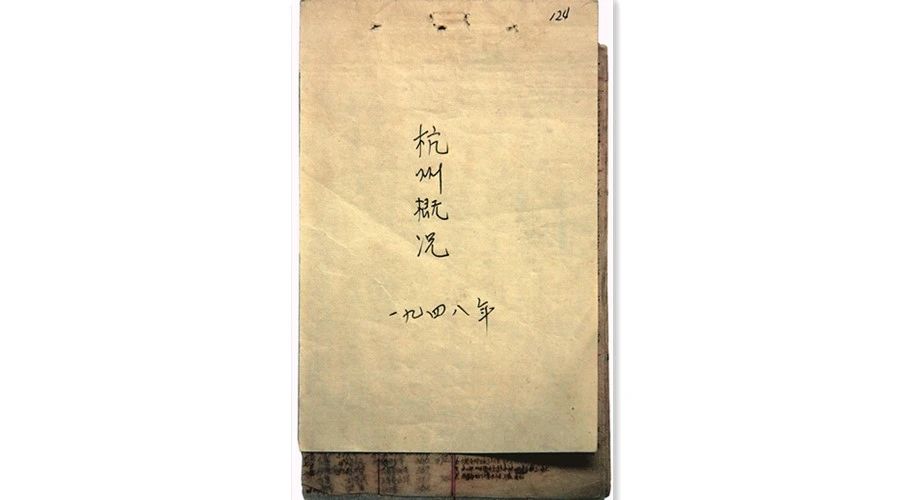 124
杭州概况
一九四八年